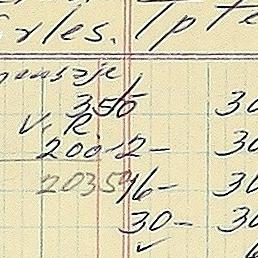 rles. Ipte
mensaje
356 30
V. R.
200-2- 30
20354 16- 30
30- 30